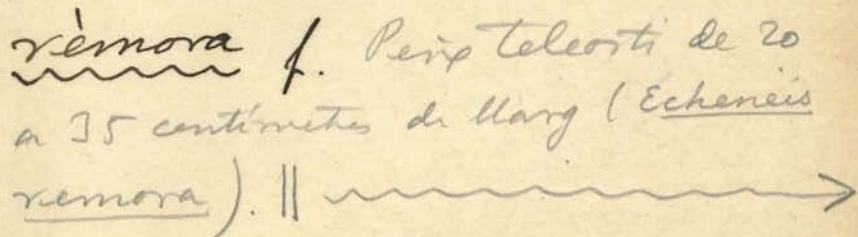 rèmora f. Peix teleosti de 20
a 35 centímetres de llarg (Echeneis
remora). ||